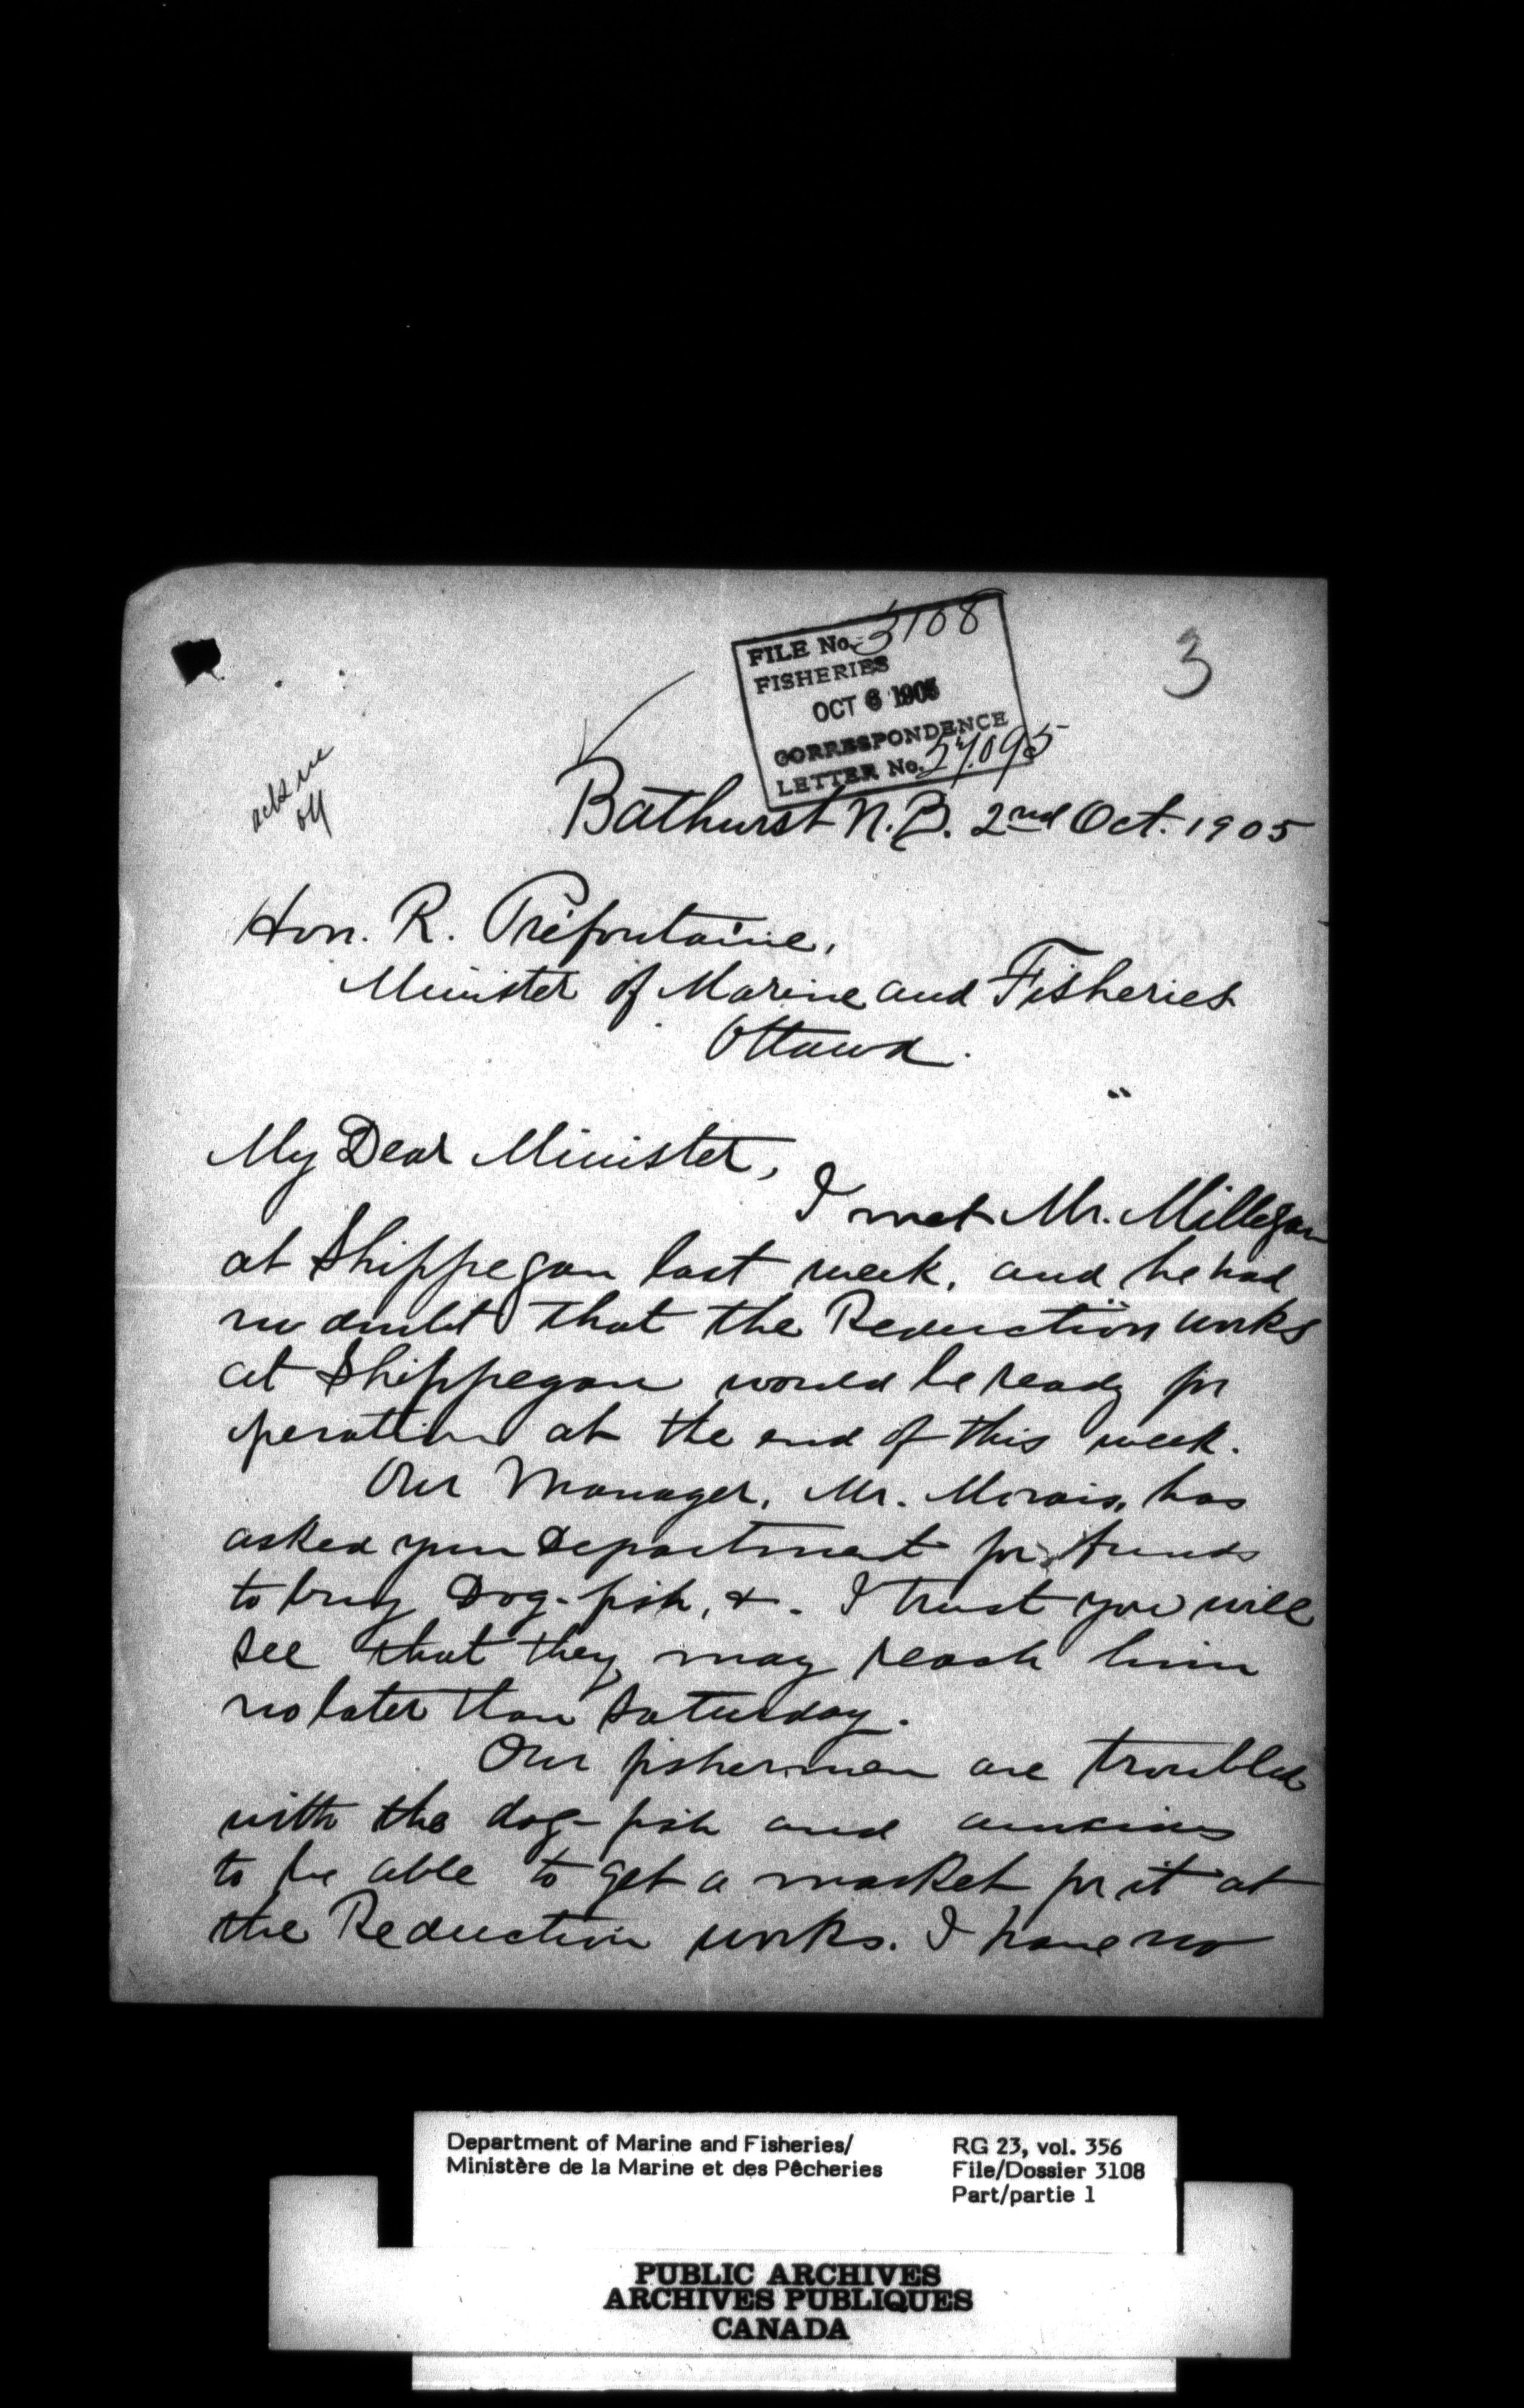 3
FILE No. 3108
FISHERIES
OCT 6 1905
CORRESPONDENCE
LETTER No. 57.095
Bathurst N.B. 2nd Oct. 1905
Hon. R. Préfontaine,
Minister of Marine and Fisheries
Ottawa.
My Dear Minister,
I met Mr. Milligan
at Shippegan last week, and he had
no doubt that the Reduction works
at Shippegan would be ready for
operation at the end of this week.
Our Manager, Mr. Morais, has
asked your Department for funds
to buy Dog-fish, &. I trust you will
see that they may reach him
no later than Saturday.
Our fishermen are troubled
with the dog-fish and anxious
to be able to get a market for it at
the Reduction works. I have no
Department of Marine and Fisheries/
Ministère de la Marine et des Pêcheries
RG 23, vol. 356
File/Dossier 3108
Part/partie 1
PUBLIC ARCHIVES
ARCHIVES PUBLIQUES
CANADA